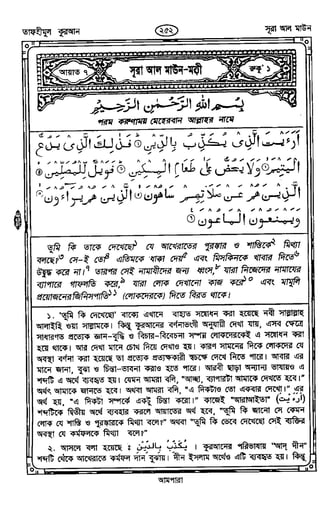 তাফহীমুল কুরআন
২৫২
সূরা আল মাউন
আয়াত ৭
সূরা আল মাউন-মক্কী
রুকূ' ১
بِسْمِ اللهِ الرَّحْمٰنِ الرَّحِيْمِ
পরম করুণাময় মেহেরবান আল্লাহর নামে
أَرَءَيْتَ الَّذِي يُكَذِّبُ بِالدِّينِ ۞ فَذٰلِكَ الَّذِي يَدُعُّ
الْيَتِيمَ ۞ وَلَا يَحُضُّ عَلٰى طَعَامِ الْمِسْكِينِ ۞ فَوَيْلٌ لِّلْمُصَلِّينَ ۞
الَّذِينَ هُمْ عَنْ صَلَاتِهِمْ سَاهُونَ ۞ الَّذِينَ هُمْ يُرَاءُونَ ۞
وَيَمْنَعُونَ الْمَاعُونَ ۞
তুমি কি তাকে দেখেছো১ যে আখেরাতের পুরস্কার ও শাস্তিকে২ মিথ্যা
বলছে?৩ সে-ই তো৪ এতিমকে ধাক্কা দেয়৫ এবং মিসকিনকে খাবার দিতে৬
উদ্বুদ্ধ করে না।৭ তারপর সেই নামাযীদের জন্য ধ্বংস,৮ যারা নিজেদের নামাযের
ব্যাপারে গাফলতি করে,৯ যারা লোক দেখানো কাজ করে১০ এবং মামুলি
প্রয়োজনের জিনিসপাতি১১ (লোকদেরকে) দিতে বিরত থাকে।
১. 'তুমি কি দেখেছো' বাক্যে এখানে বাহ্যত সম্বোধন করা হয়েছে নবী সাল্লাল্লাহু
আলাইহি ওয়া সাল্লামকে। কিন্তু কুরআনের বর্ণনাভংগী অনুযায়ী দেখা যায়, এসব ক্ষেত্রে
সাধারণত প্রত্যেক জ্ঞান-বুদ্ধি ও বিচার-বিবেচনা সম্পন্ন লোকদেরকেই এ সম্বোধন করা
হয়ে থাকে। আর দেখা মানে চোখ দিয়ে দেখাও হয়। কারণ সামনের দিকে লোকদের যে
অবস্থা বর্ণনা করা হয়েছে তা প্রত্যেক প্রত্যক্ষকারী স্বচক্ষে দেখে নিতে পারে। আবার এর
মানে জানা, বুঝা ও চিন্তা-ভাবনা করাও হতে পারে। আরবী ছাড়া অন্যান্য ভাষায়ও এ
শব্দটি এ অর্থে ব্যবহৃত হয়। যেমন আমরা বলি, "আচ্ছা, ব্যাপারটা আমাকে দেখতে হবে।"
অর্থাৎ আমাকে জানতে হবে। অথবা আমরা বলি, "এ দিকটাও তো একবার দেখো।" এর
অর্থ হয়, "এ দিকটা সম্পর্কে একটু চিন্তা করো।" কাজেই "আরাআইতা" (أرءيت)
শব্দটিকে দ্বিতীয় অর্থে ব্যবহার করলে আয়াতের অর্থ হবে, "তুমি কি জানো সে কেমন
লোক যে শাস্তি ও পুরস্কারকে মিথ্যা বলে?" অথবা "তুমি কি ভেবে দেখেছো সেই ব্যক্তির
অবস্থা যে কর্মফলকে মিথ্যা বলে?"
২. আসলে বলা হয়েছে : يُكَذِّبُ بِالدِّيْنِ । কুরআনের পরিভাষায় "আদ্ দীন"
শব্দটি থেকে আখেরাতে কর্মফল দান বুঝায়। দীন ইসলাম অর্থেও এটি ব্যবহৃত হয়। কিন্তু
আমপারা